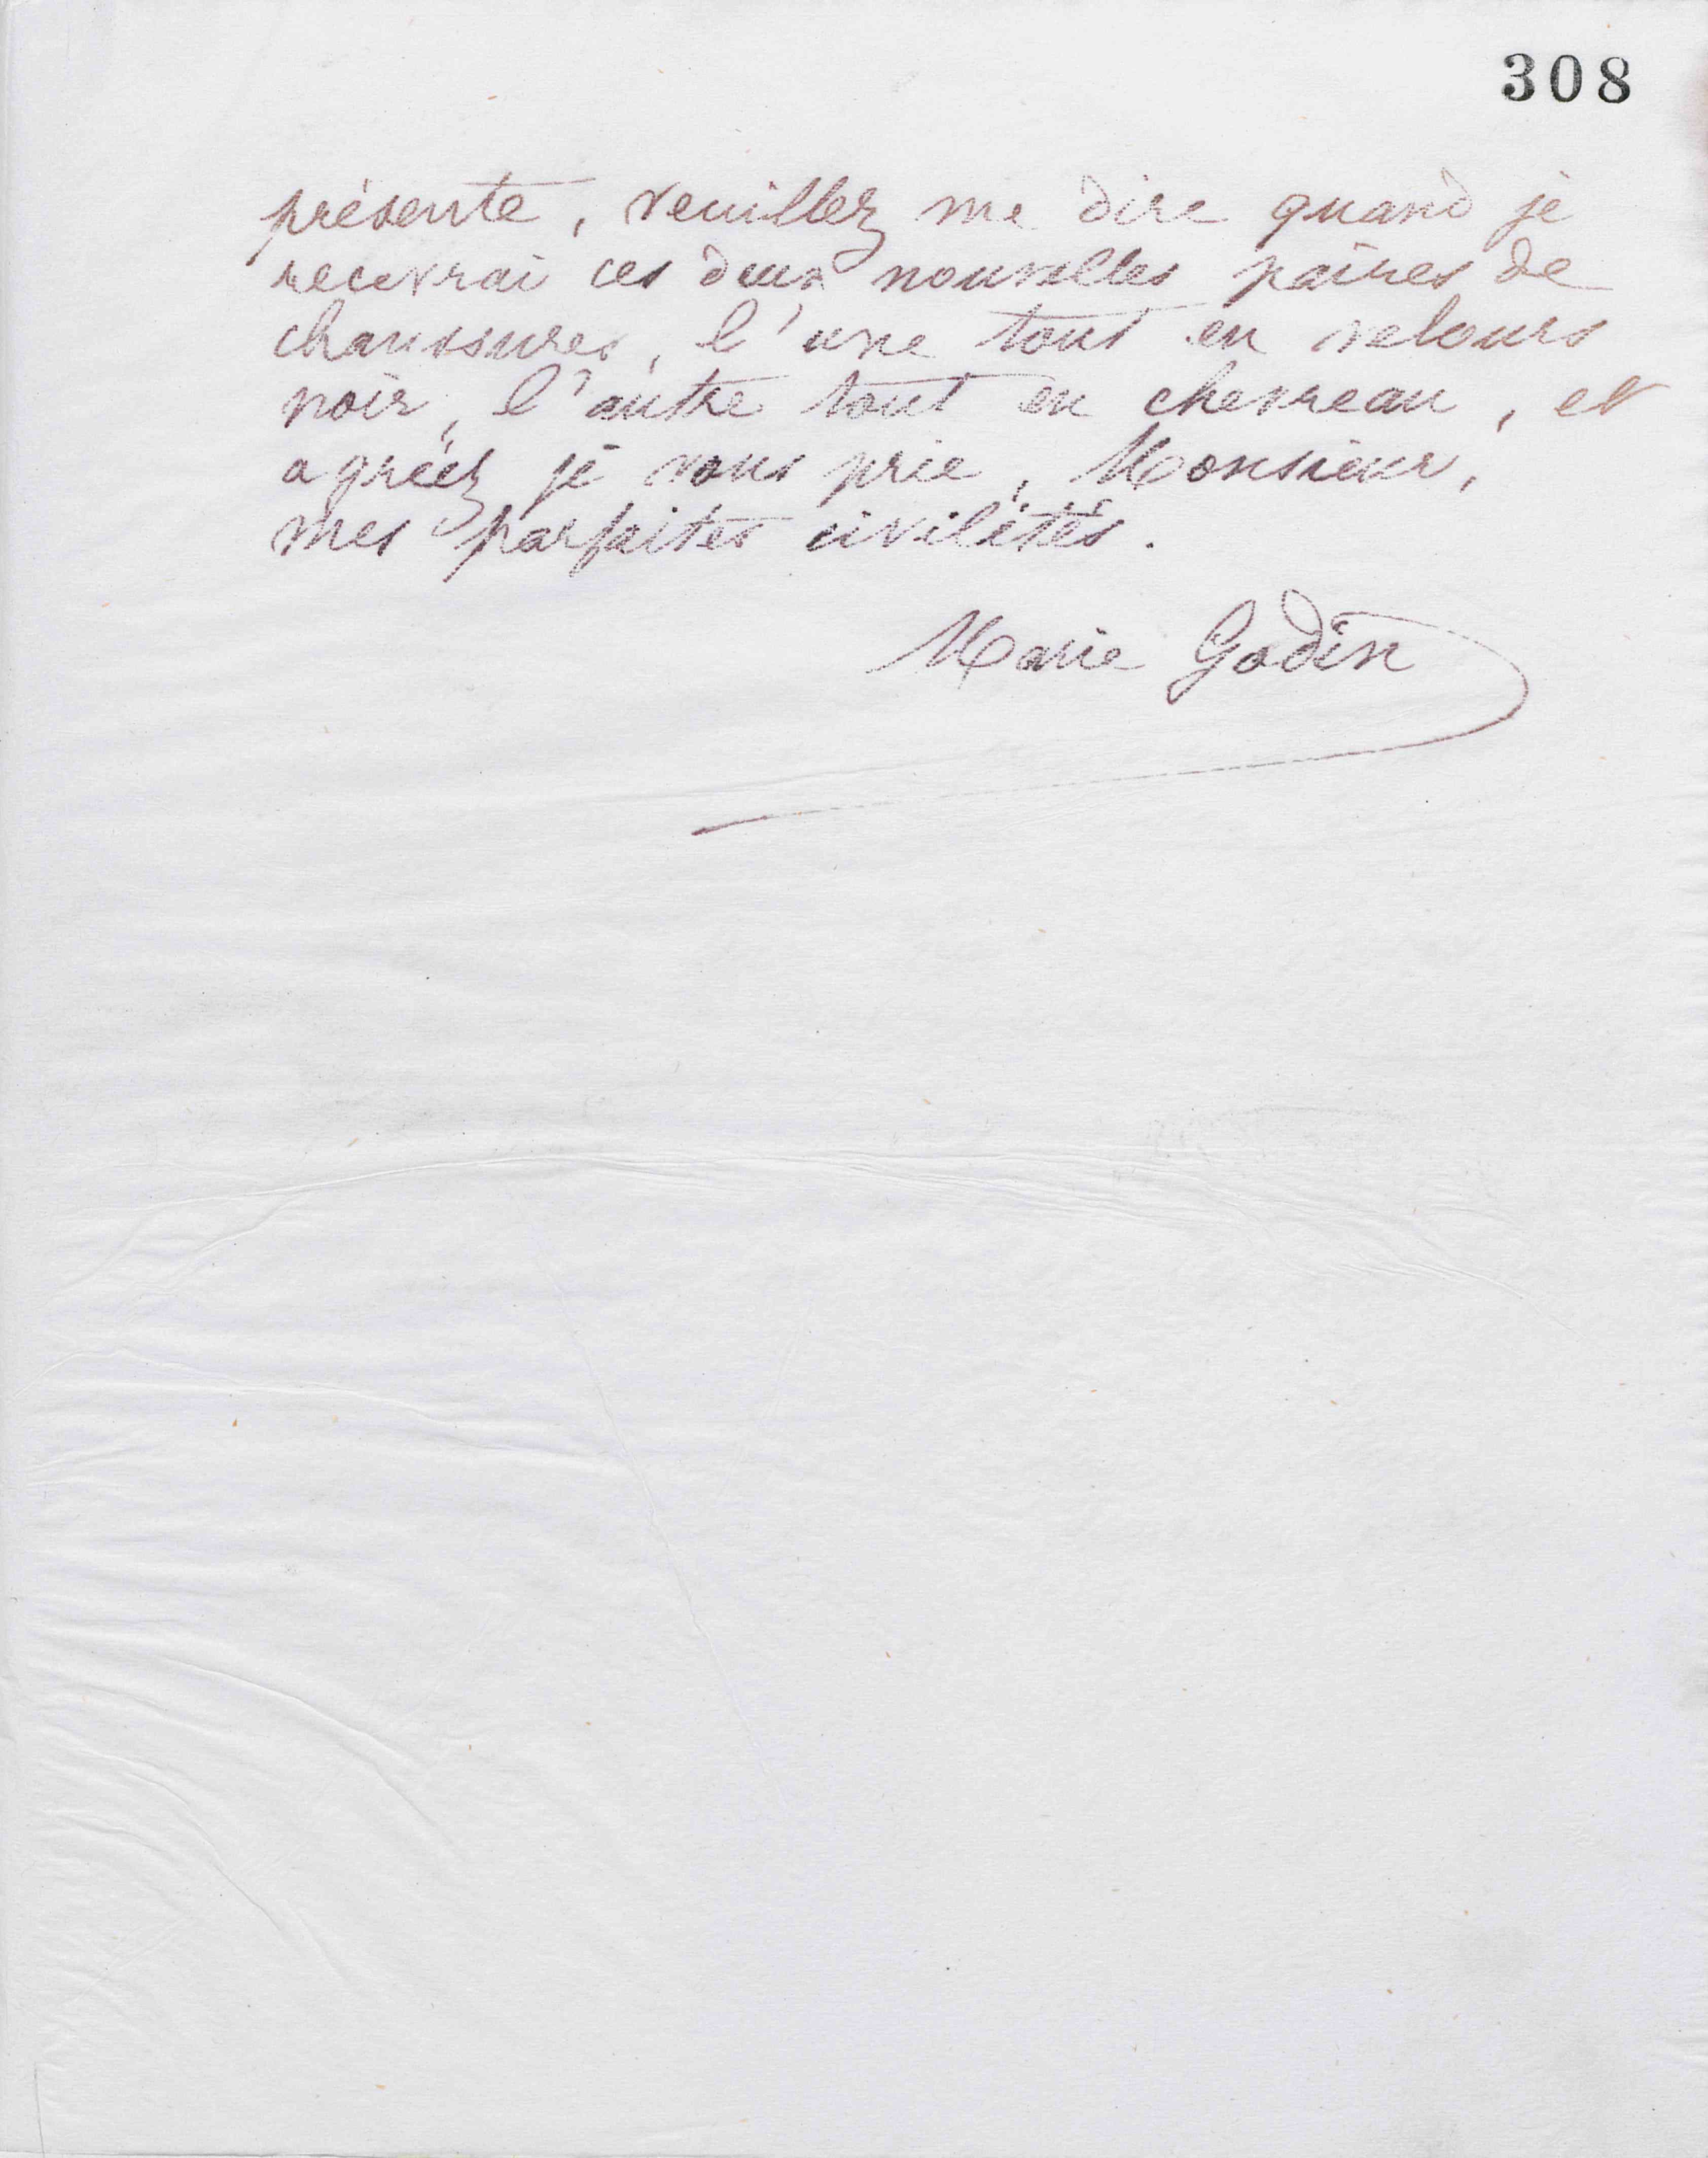 308
présente, veuillez me dire quand je
recevrai ces deux nouvelles paires de
chaussures, l'une tout en velours
noir, l'autre tout en chevreau, et
agréez je vous prie, Monsieur,
mes parfaites civilités.
Marie Godin